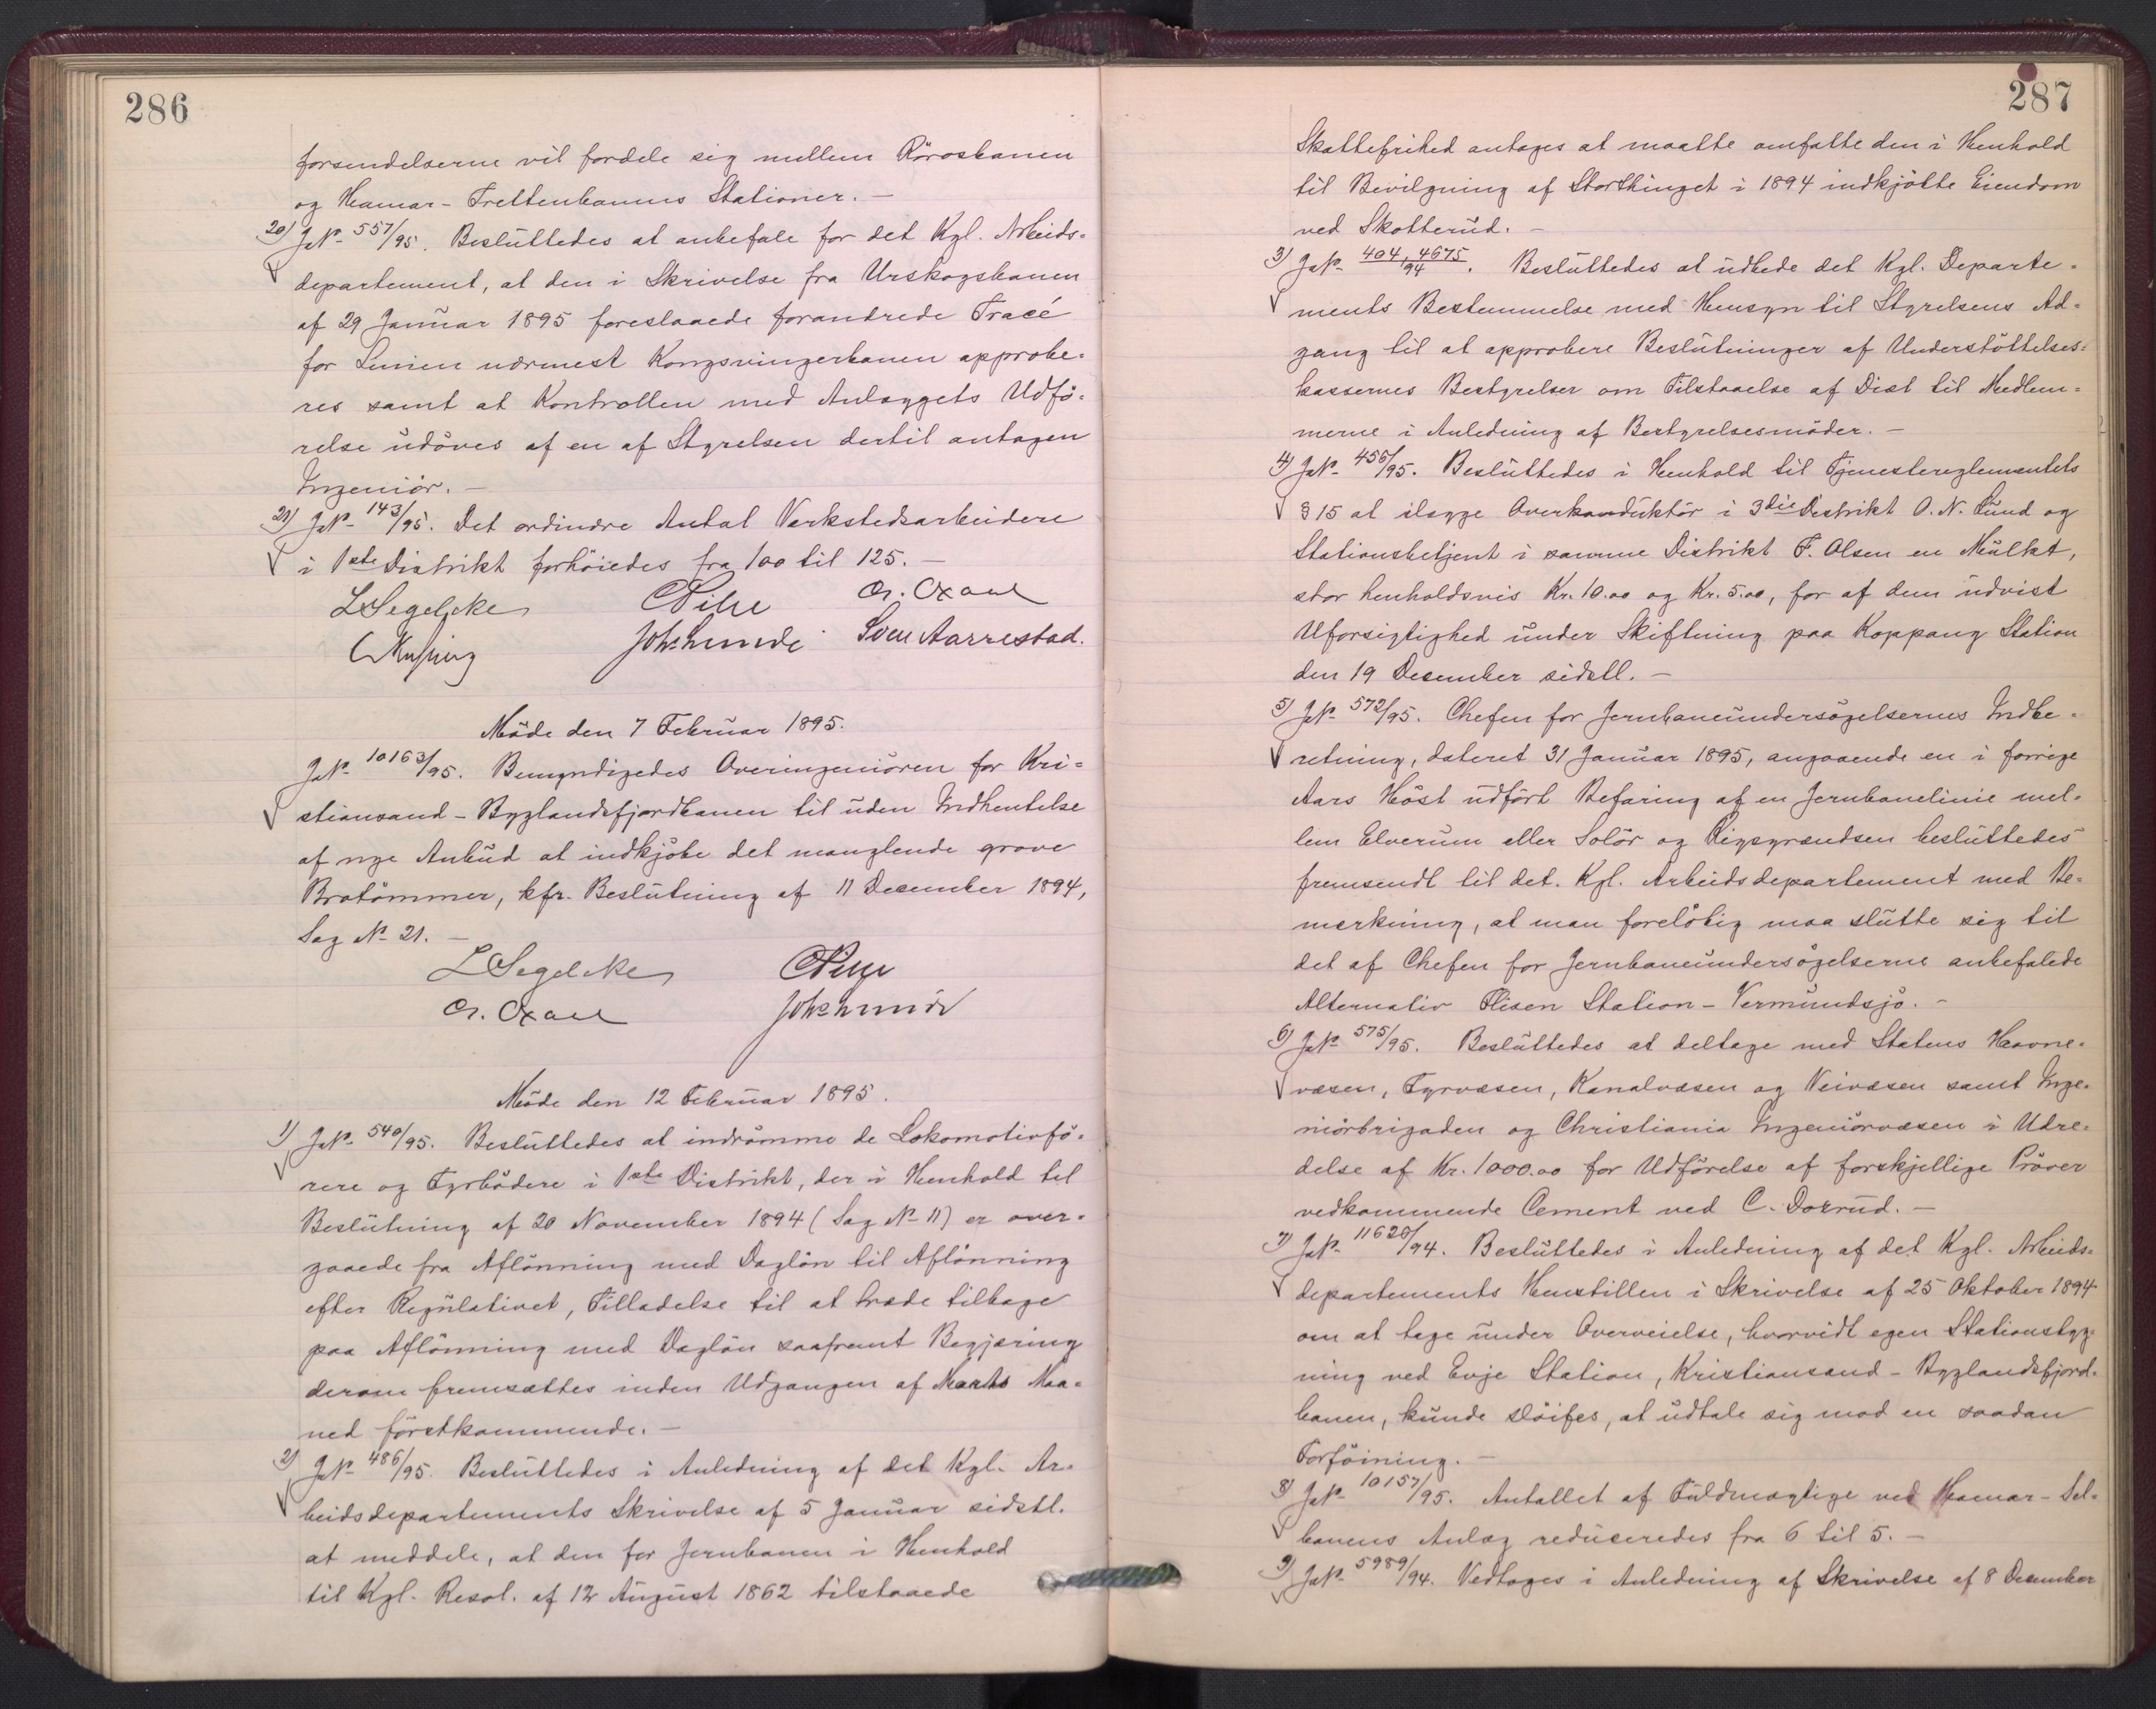 286
forsendelserne vil fordele sig mellem Rørosbanen
og Hamar-Trettenbanens Stationer. —
20) J.№ 557/95. Besluttedes at anbefale for det Kgl. Arbeids-
departement, at den i Skrivelse fra Urskogsbanen
af 29 Januar 1895 foreslaaede forandrede Tracé
for Linien nærmest Kongsvingerbanen approbe-
res samt at Kontrollen med Anlæggets Udfø-
relse udøves af en af Styrelsen dertil antagen
Ingeniør. —
21) J.№ 143/95. Det ordinære Antal Verkstedsarbeidere
i 1ste Distrikt forhøiedes fra 100 til 125. —
L Segelcke CPihl Cr. Oxaal
Joh. Lunde Sven Aarrestad.
Møde den 7 Februar 1895.
J.№ 10163/95. Bemyndigedes Overingeniøren for Kri-
stiansand-Byglandsfjordbanen til uden Indhentelse
af nye Anbud at indkjøbe det manglende grove
Brotømmer, kfr. Beslutning af 11 December 1894,
Sag № 21. —
L Segelcke CPihl
Cr. Oxaal Joh. Lunde
Møde den 12 Februar 1895.
1) J.№ 540/95. Besluttedes at indrømme de Lokomotivfø-
rere og Fyrbødere i 1ste Distrikt, der i Henhold til
Beslutning af 20 November 1894 (Sag № 11) er over-
gaaede fra Aflønning med Dagløn til Aflønning
efter Regulativet, Tilladelse til at træde tilbage
paa Aflønning med Dagløn saafremt Begjæring
derom fremsættes inden Udgangen af Marts Maa-
ned førstkommende. —
2) J.№ 486/95. Besluttedes i Anledning af det Kgl. Ar-
beidsdepartements Skrivelse af 5 Januar sidstl.
at meddele, at den for Jernbanen i Henhold
til Kgl. Resol. af 12 August 1862 tilstaaede
287
Skattefrihed antages at maatte omfatte den i Henhold
til Bevilgning af Storthinget i 1894 indkjøbte Eiendom
ved Skotterud. —
3) J.№ 404, 4675/94. Besluttedes at udbede det Kgl. Departe-
ments Bestemmelse med Hensyn til Styrelsens Ad-
gang til at approbere Beslutninger af Understøttelses-
kassernes Bestyrelser om Tilstaaelse af Diæt til Medlem-
merne i Anledning af Bestyrelsesmøder. —
4) J.№ 456/95. Besluttedes i Henhold til Tjenestereglementets
§ 15 at ilægge Overkonduktør i 3die Distrikt O. N. Lund og
Stationsbetjent i samme Distrikt F. Olsen en Mulkt,
stor henholdsvis Kr. 10.00 og Kr. 5.00, for af dem udvist
Uforsigtighed under Skiftning paa Koppang Station
den 19 Desember sidstl. —
5) J.№ 572/95. Chefen for Jernbaneundersøgelsernes Indbe-
retning, dateret 31 Januar 1895, angaaende en i forrige
Aars Høst udført Befaring af en Jernbanelinie mel-
lem Elverum eller Solør og Rigsgrændsen besluttedes
fremsendt til det Kgl. Arbeidsdepartement med Be-
mærkning, at man foreløbig maa slutte sig til
det af Chefen for Jernbaneundersøgelserne anbefalede
Alternativ Flisen Station - Vermundsjø. —
6) J.№ 575/95. Besluttedes at deltage med Statens Havne-
væsen, Fyrvæsen, Kanalvæsen og Veivæsen samt Inge-
niørbrigaden og Christiania Ingeniørvæsen i Udre-
delse af Kr. 1000.00 for Udførelse af forskjellige Prøver
vedkommende Cement ved C. Dorrud. —
7) J.№ 11626/94. Besluttedes i Anledning af det Kgl. Arbeids-
departements Henstillen i Skrivelse af 25 Oktober 1894
om at tage under Overveielse, hvorvidt egen Stationsbyg-
ning ved Evje Station, Kristiansand-Byglandsfjord-
banen, kunde sløifes, at udtale sig mod en saadan
Forføining. —
8) J.№ 10157/95. Antallet af Fuldmægtige ved Hamar-Sel-
banens Anlæg reduceredes fra 6 til 5. —
9) J.№ 5989/94. Vedtoges i Anledning af Skrivelse af 8 December